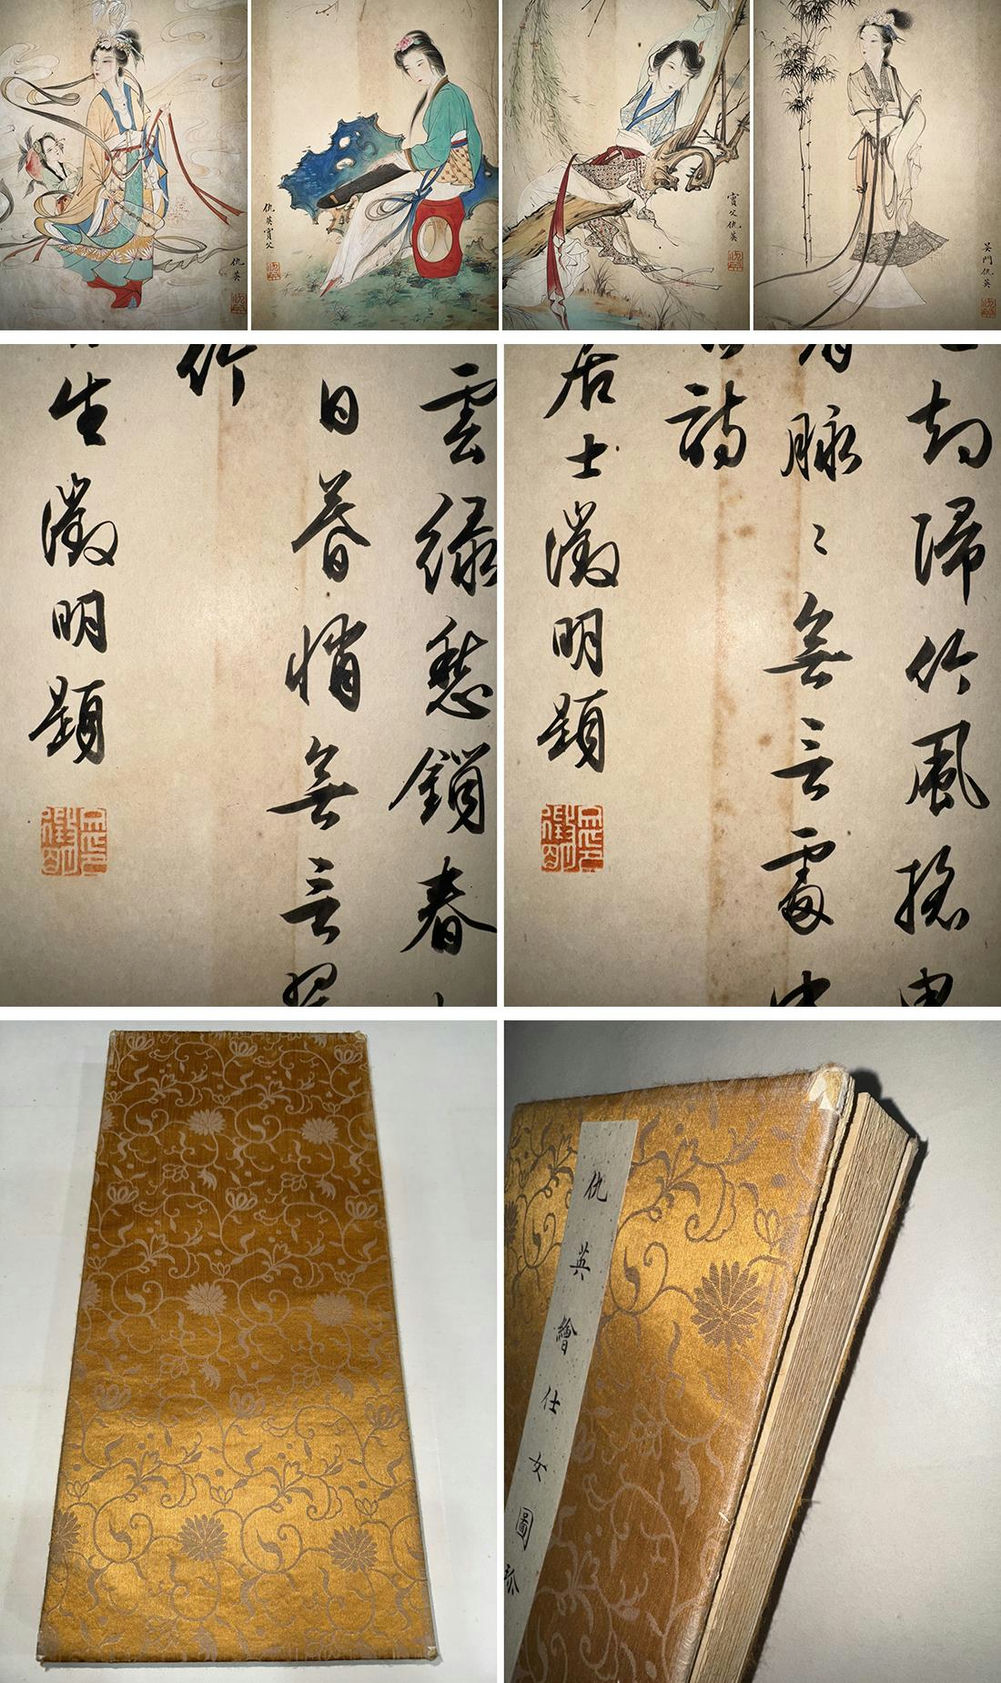 仇英
仇英實父
實父仇英
吳門仇英
雲綠愁鎖春
日暮悄無言
竹
生徵明題
却歸竹風搖
脉〻無言處
詩
居士徵明題
仇英繪仕女圖